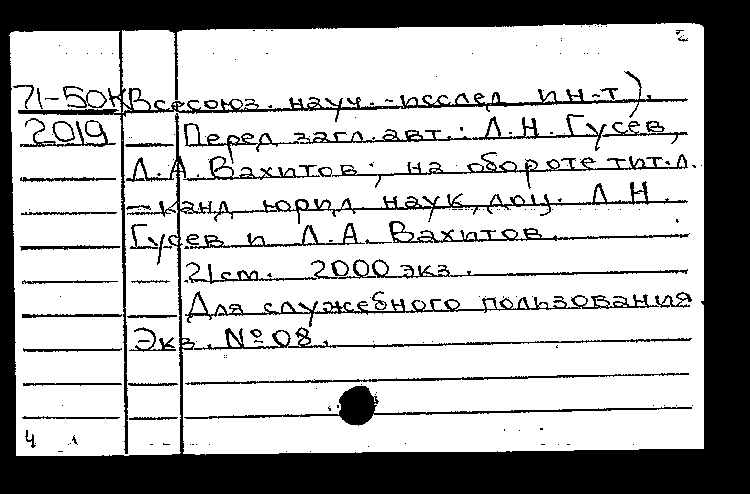 2
71-50К Всесоюз. науч.-исслед ин-т).
2019 Перед загл. авт.: Л.Н. Гусев,
Л.А. Вахитов; на обороте тит.л.
- канд юрид наук, доц. Л Н.
Гусев и Л.А. Вахитов.
21 cm. 2000 экз.
Для служебного пользования.
Экз. № 08.
4